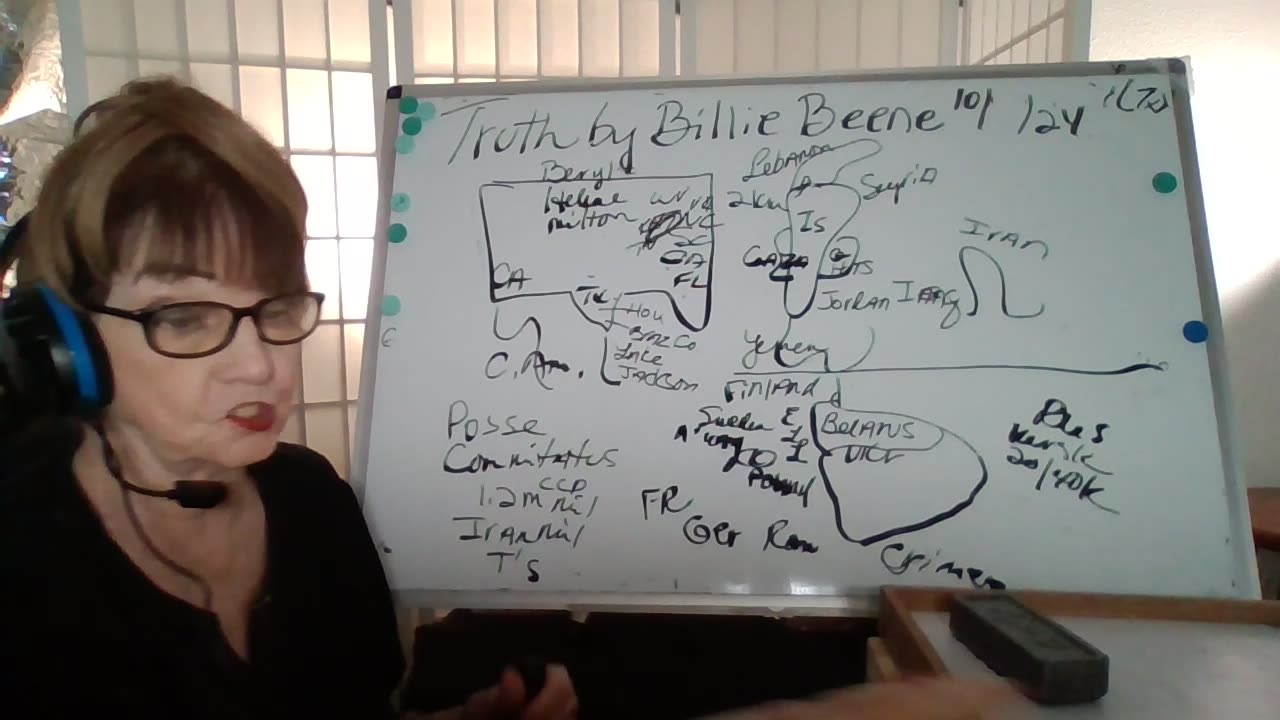 Truth by Billie Beene 101 /24
Beryl
Helene WV VA
milton NC
SC
GA
CA FL
TX
Hou
Lake
Jackson
C. Am.
Lebanon
2km
Syria
Is
GAZA
Jordan
Iraq
Iran
Yemen
Finland
E
Belarus
UKr
Rus
Kursk
20/40K
FR
Ger Rom
Crimea
Posse
Commitatus
CCP
1.2m mil
Iran mil
T's